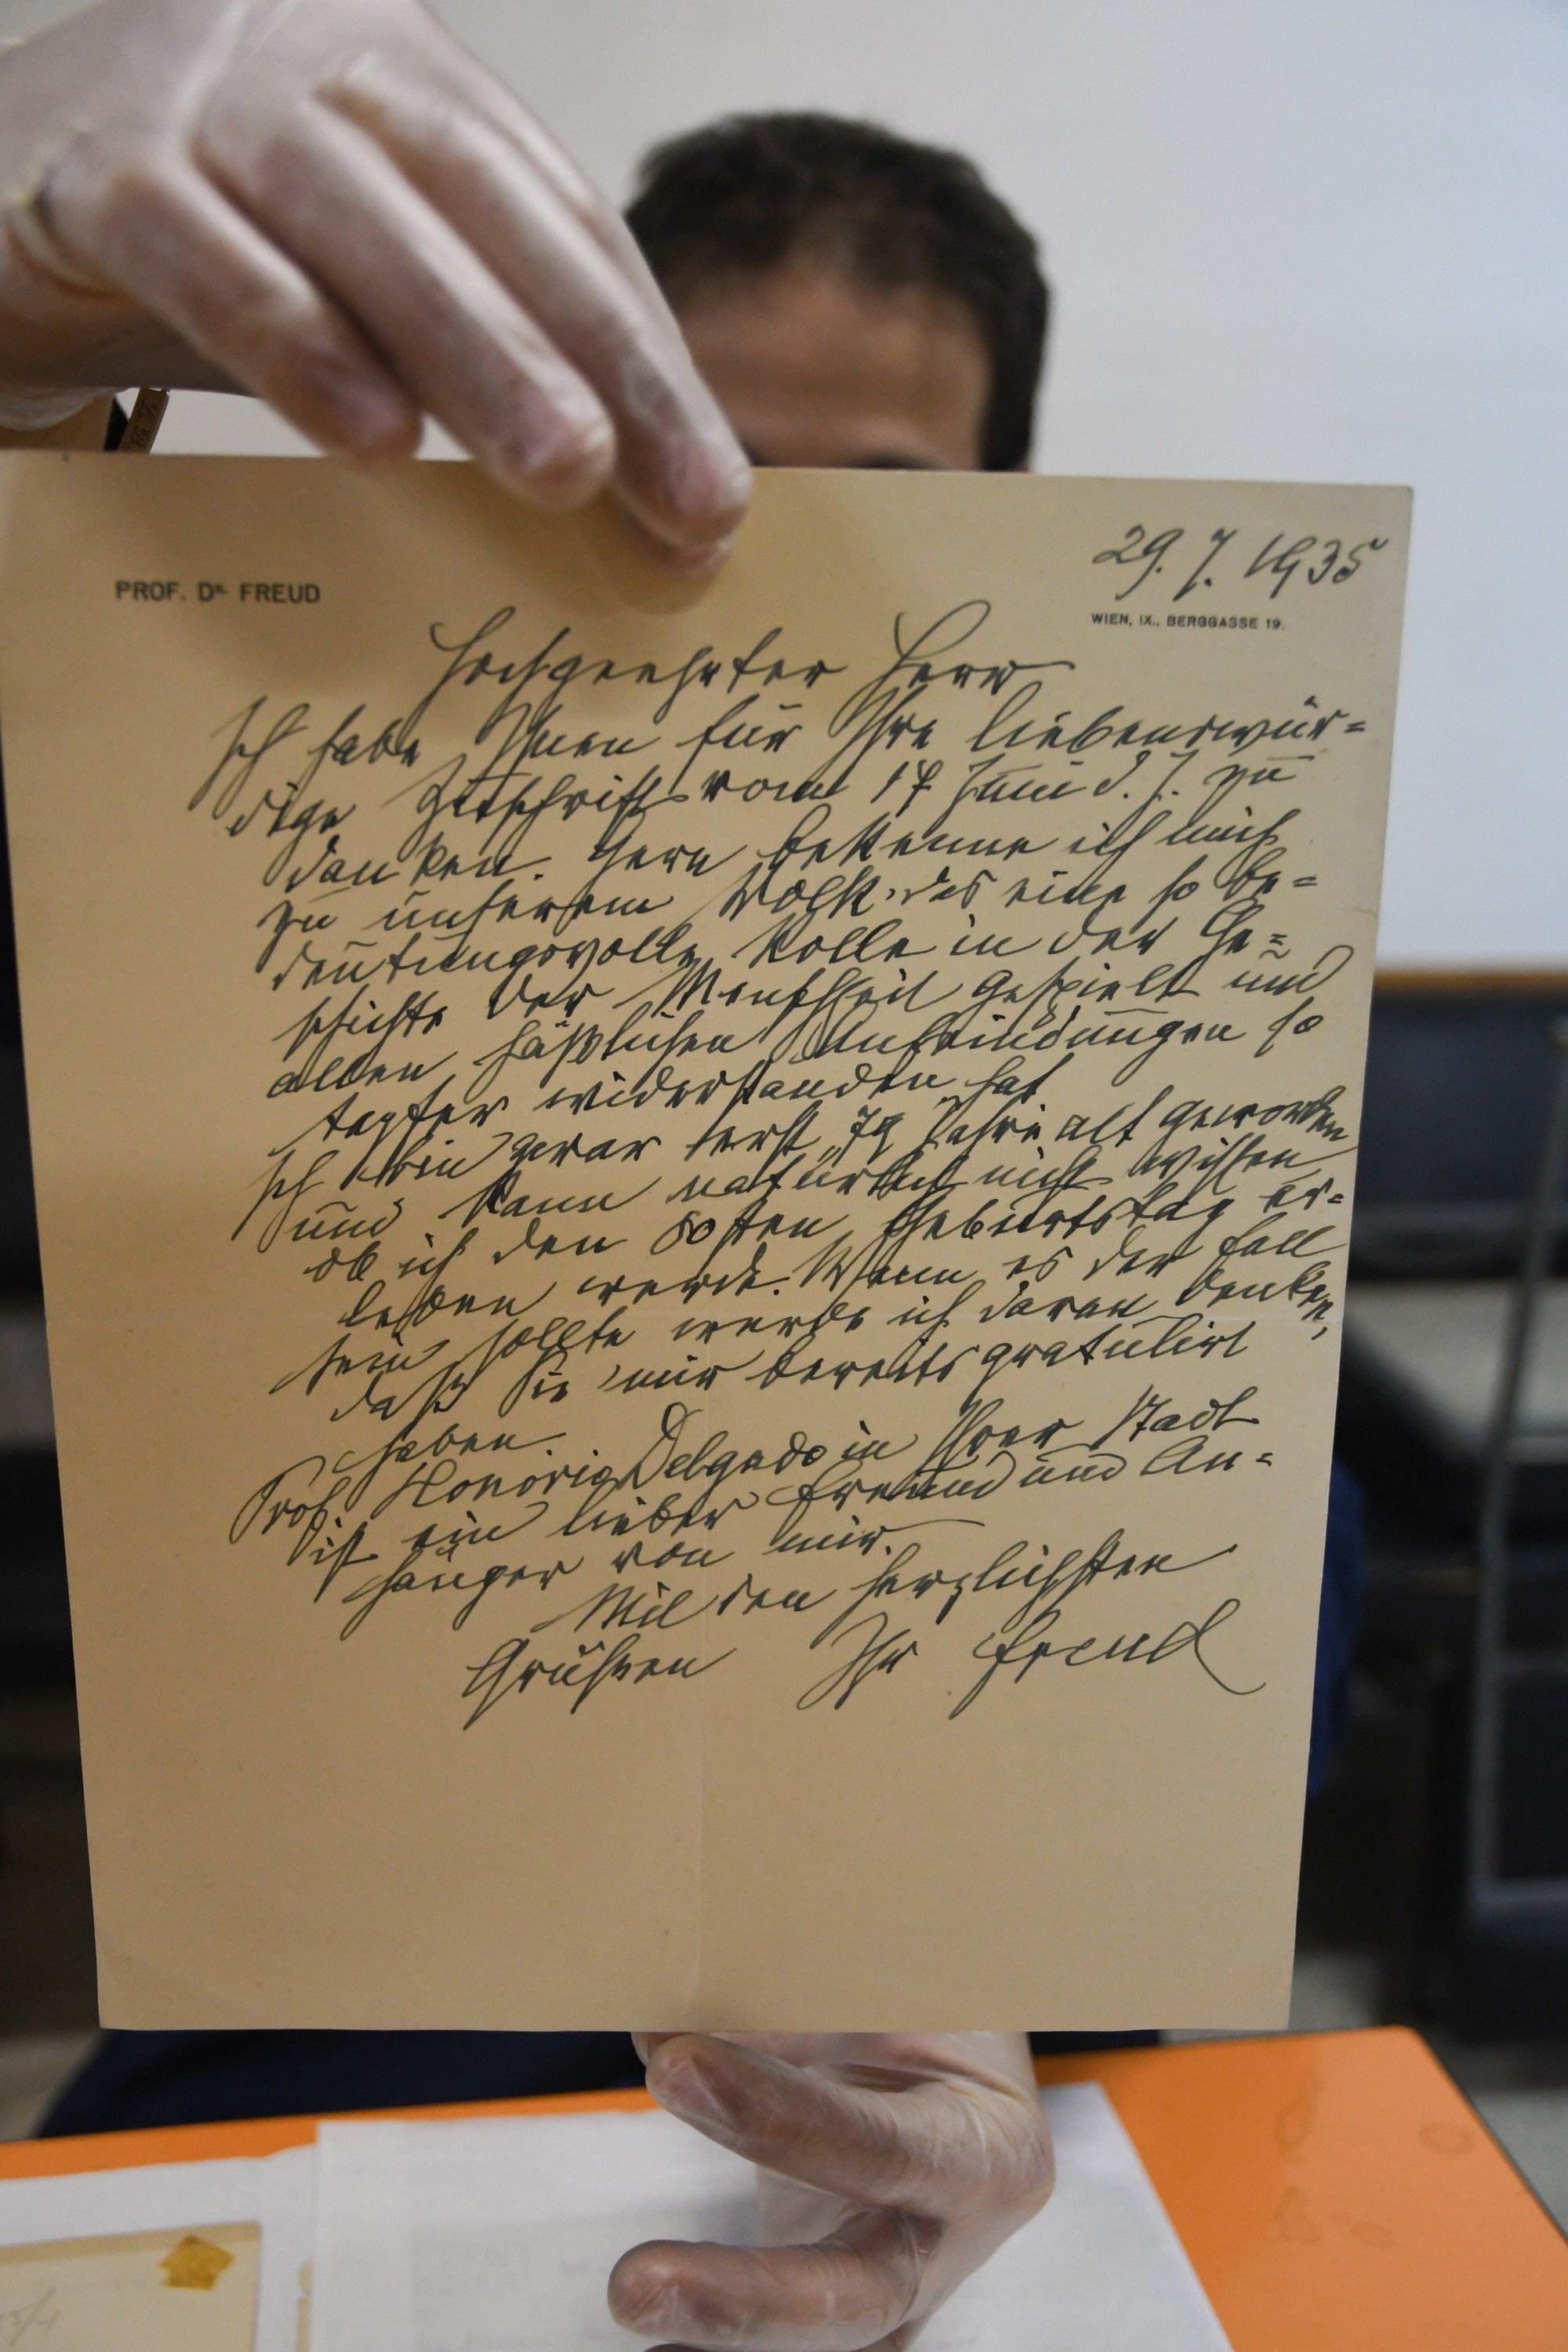 29. 7. 1935
PROF. DR. FREUD
WIEN, IX., BERGGASSE 19.
Hochgeehrter Herr
Ich habe Ihnen für Ihre liebenswür=
dige Zuschrift vom 17 Juni d. J. zu
danken. Gern bekenne ich mich
zu unserem Volk, das eine so be=
deutungsvolle Rolle in der Ge=
schichte der Menschheit gespielt und
allen häßlichen Anfeindungen so
tapfer widerstanden hat
Ich bin zwar erst 79 Jahre alt geworden
und kann natürlich nicht wissen
ob ich den 80sten Geburtstag er=
leben werde. Wenn es der Fall
sein sollte werde ich daran denken,
daß Sie mir bereits gratulirt
haben.
Prof. Honorio Delgado in Ihrer Stadt
ist ein lieber Freund und An=
hänger von mir.
Mit den herzlichsten
Grüßen Ihr Freud